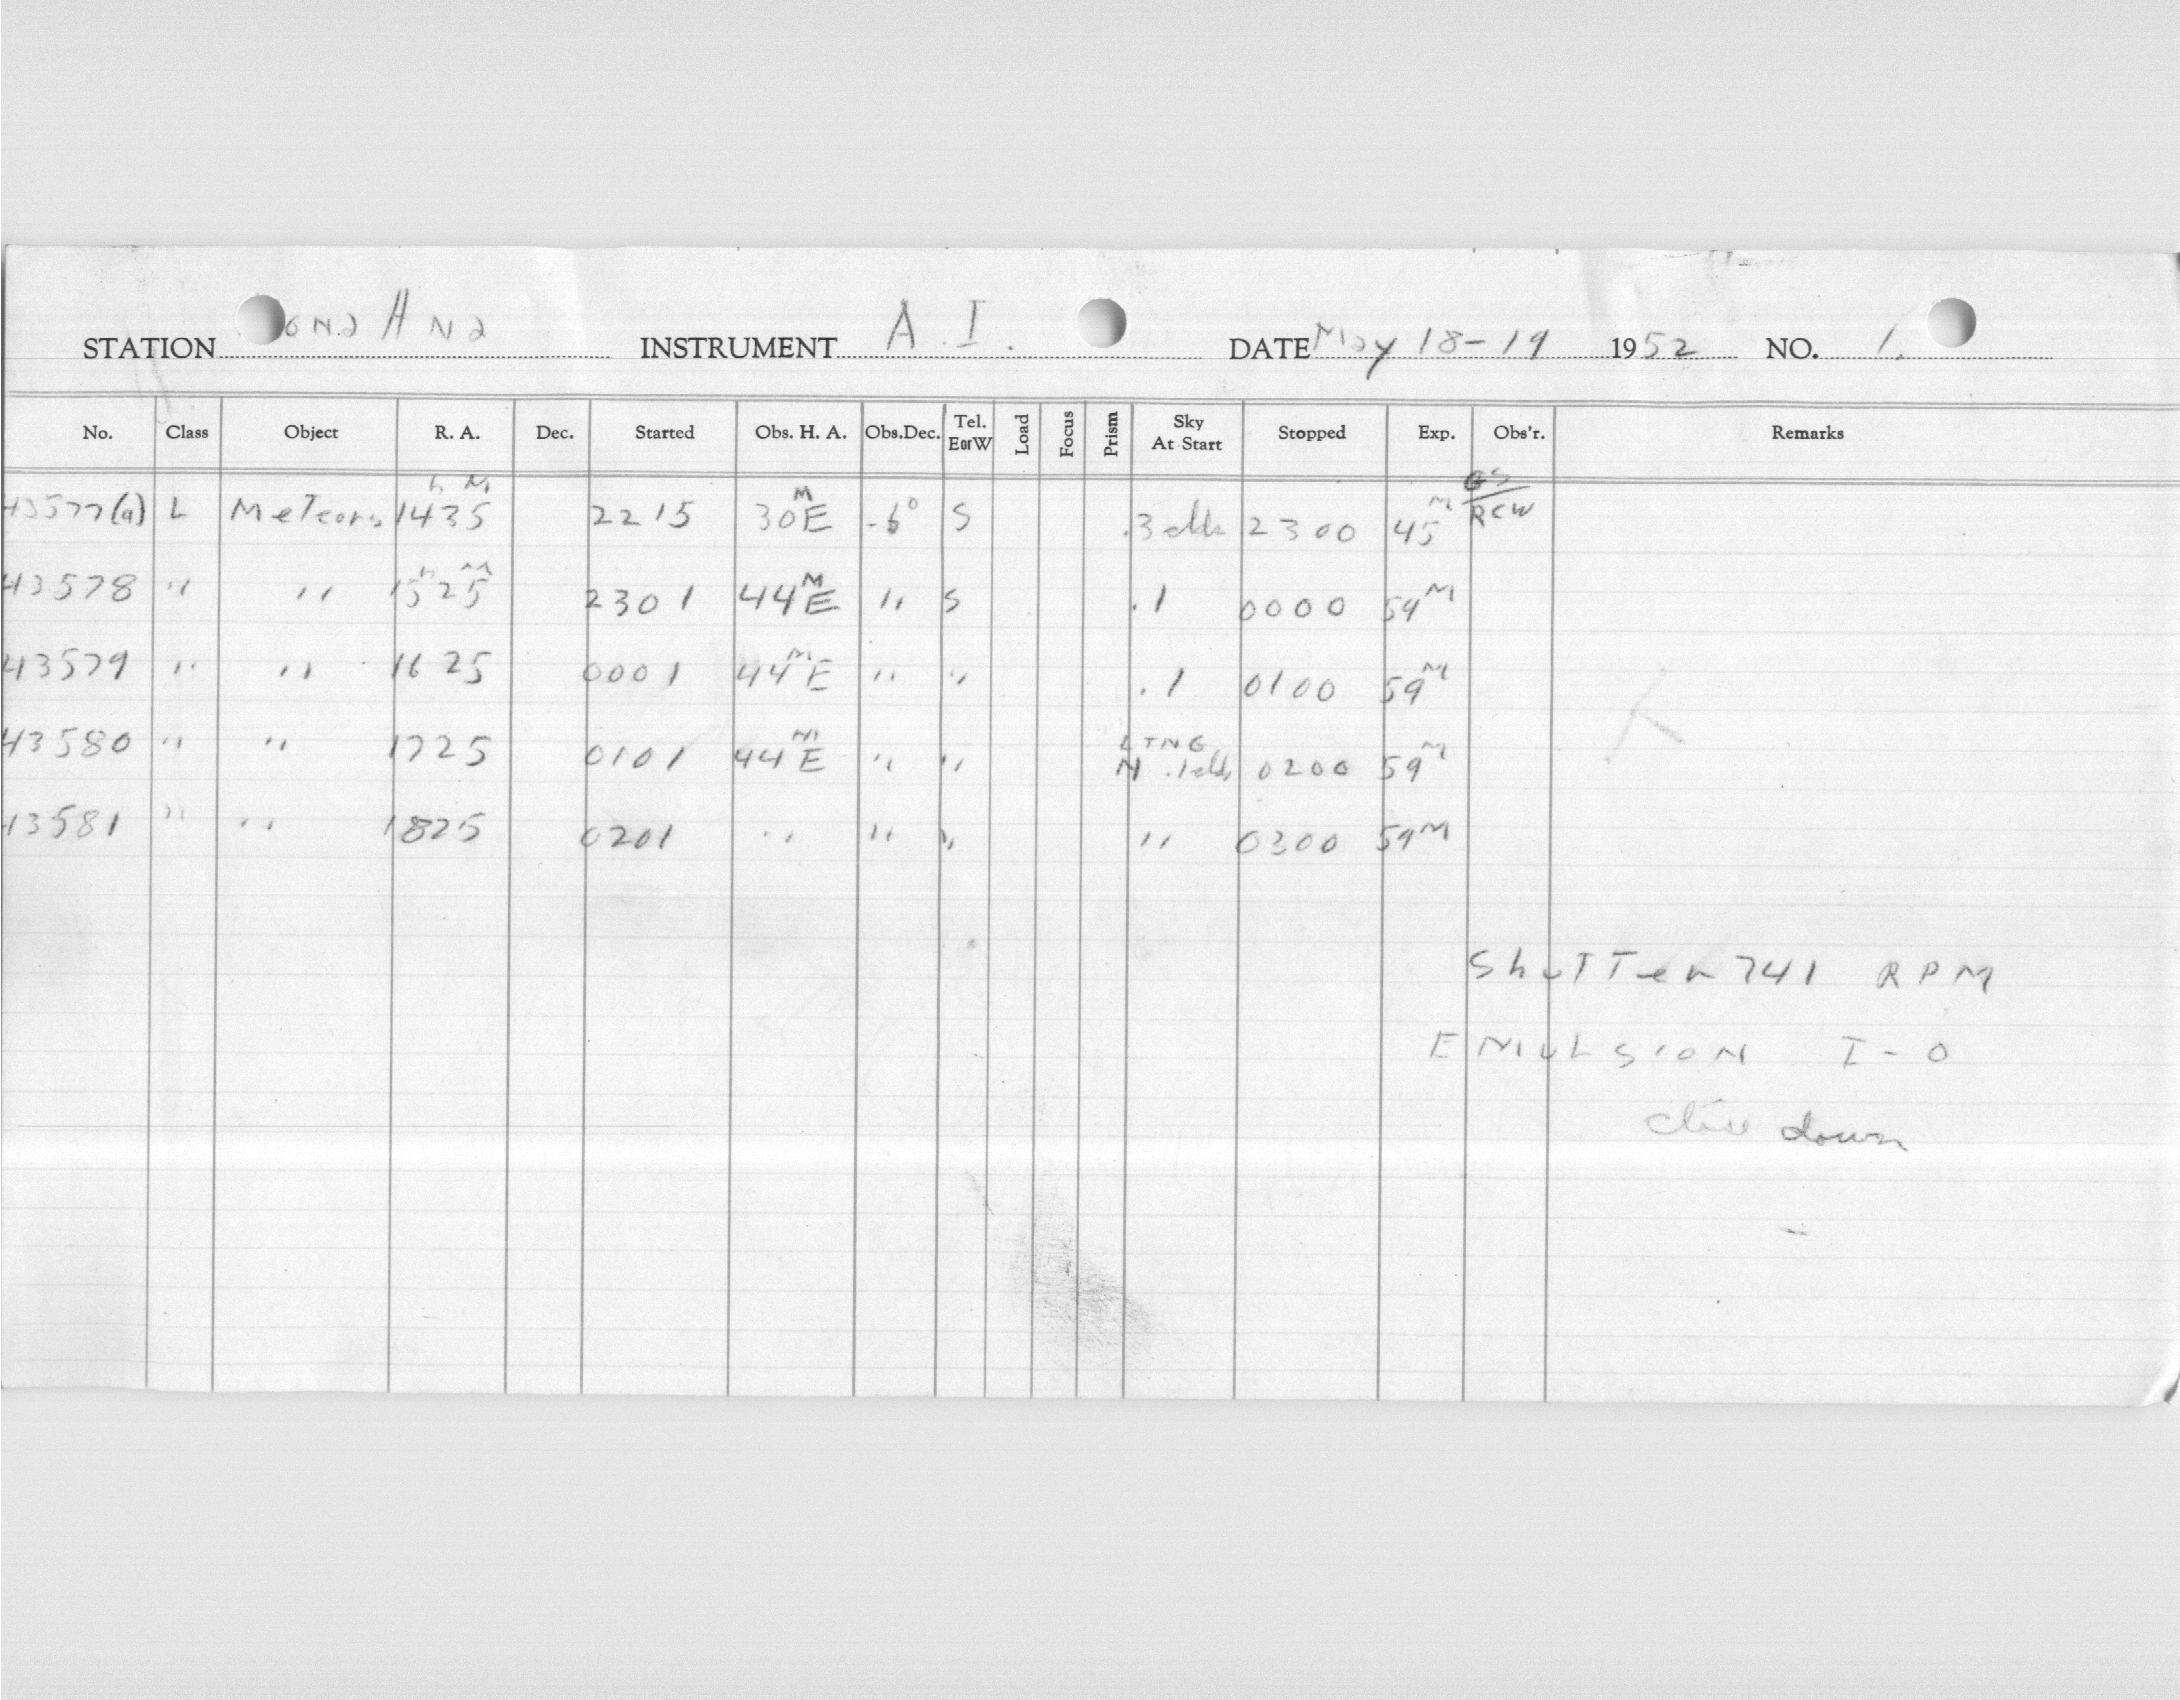 STATION ona Ana INSTRUMENT A.I. DATE May 18-19 1952 NO. 1.
No. Class Object R. A. Dec. Started Obs. H. A. Obs.Dec. Tel. E or W Load Focus Prism Sky At Start Stopped Exp. Obs'r. Remarks
43577(a) L Meteors 14h 35M 2215 30M E -6° S .3 clds 2300 45M GS/RCW
43578 " " 15h 25M 2301 44M E " S .1 0000 59M
43579 " " 1625 0001 44M E " " .1 0100 59M
43580 " " 1725 0101 44M E " " LTNG N .1 clds 0200 59M
43581 " " 1825 0201 " " " " 0300 59M
Shutter 741 RPM
EMULSION I-O
down